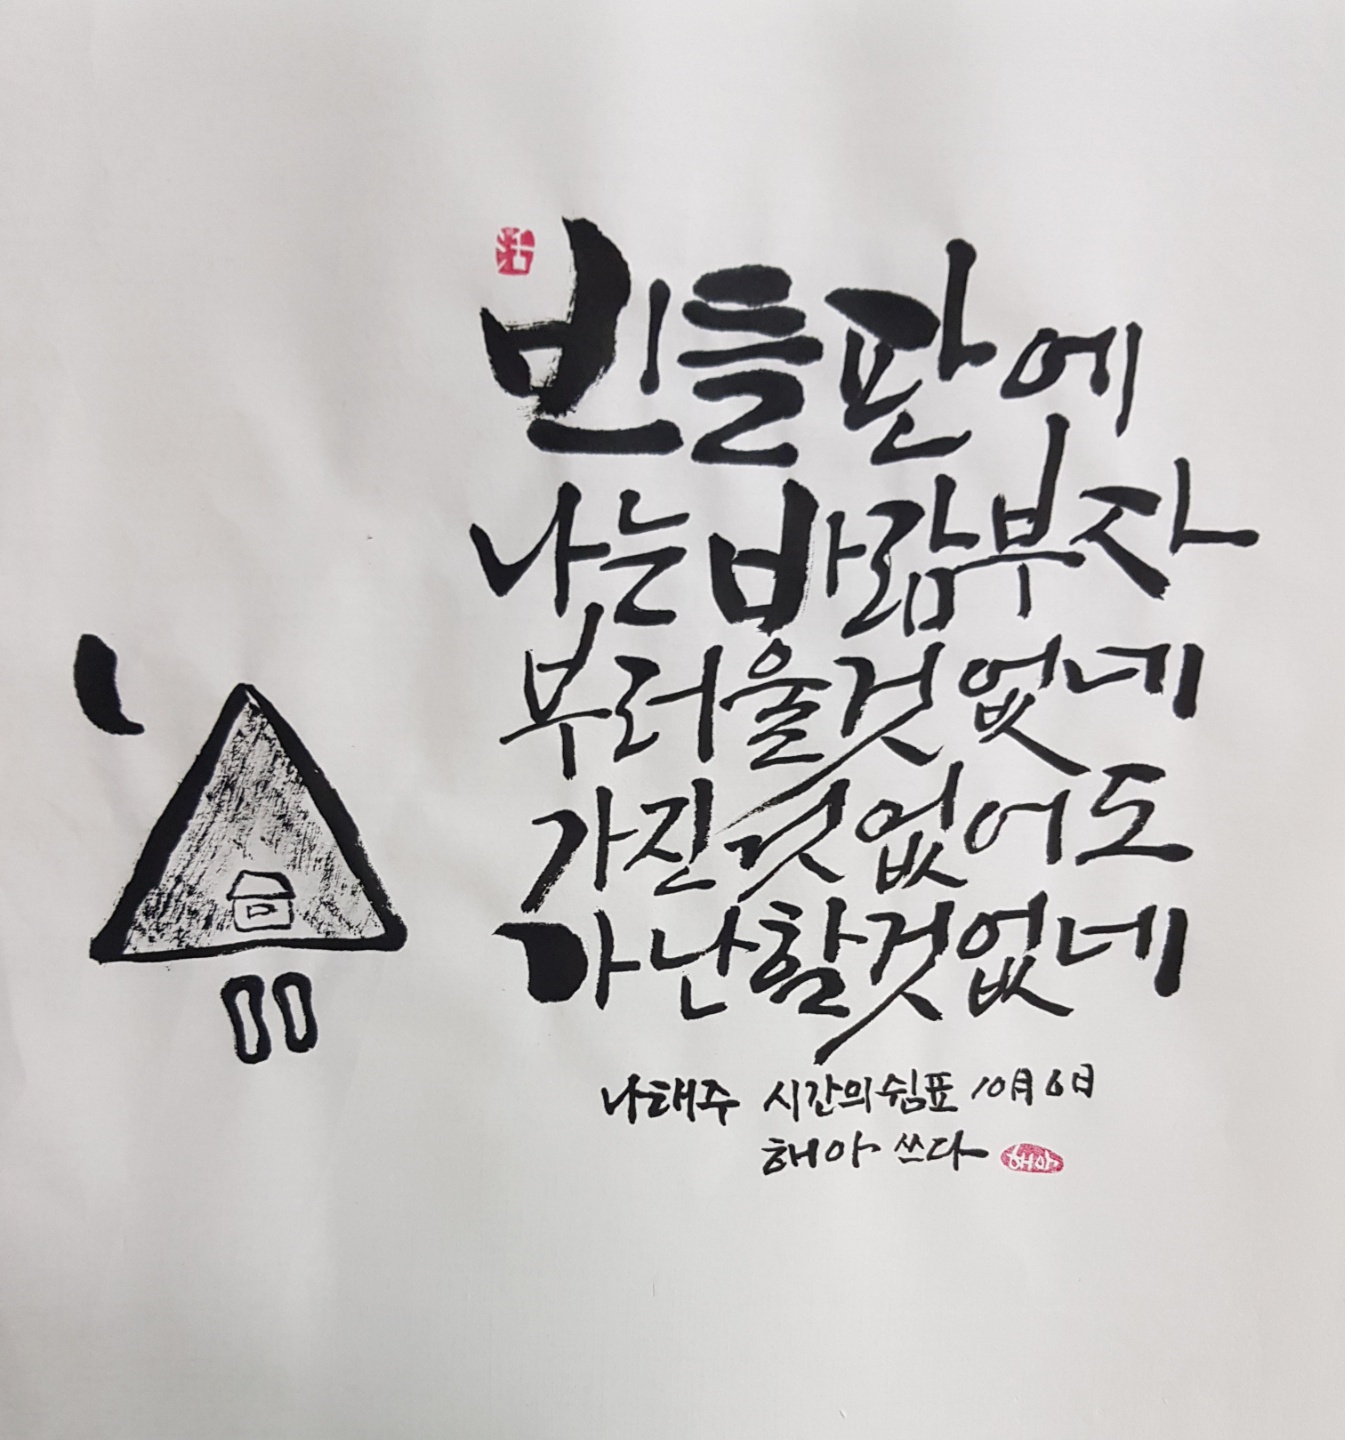 빈들판에
나는바람부자
부러울것없네
가진것없어도
가난할것없네
나태주 시간의쉼표 10月 6日
해아 쓰다 해아